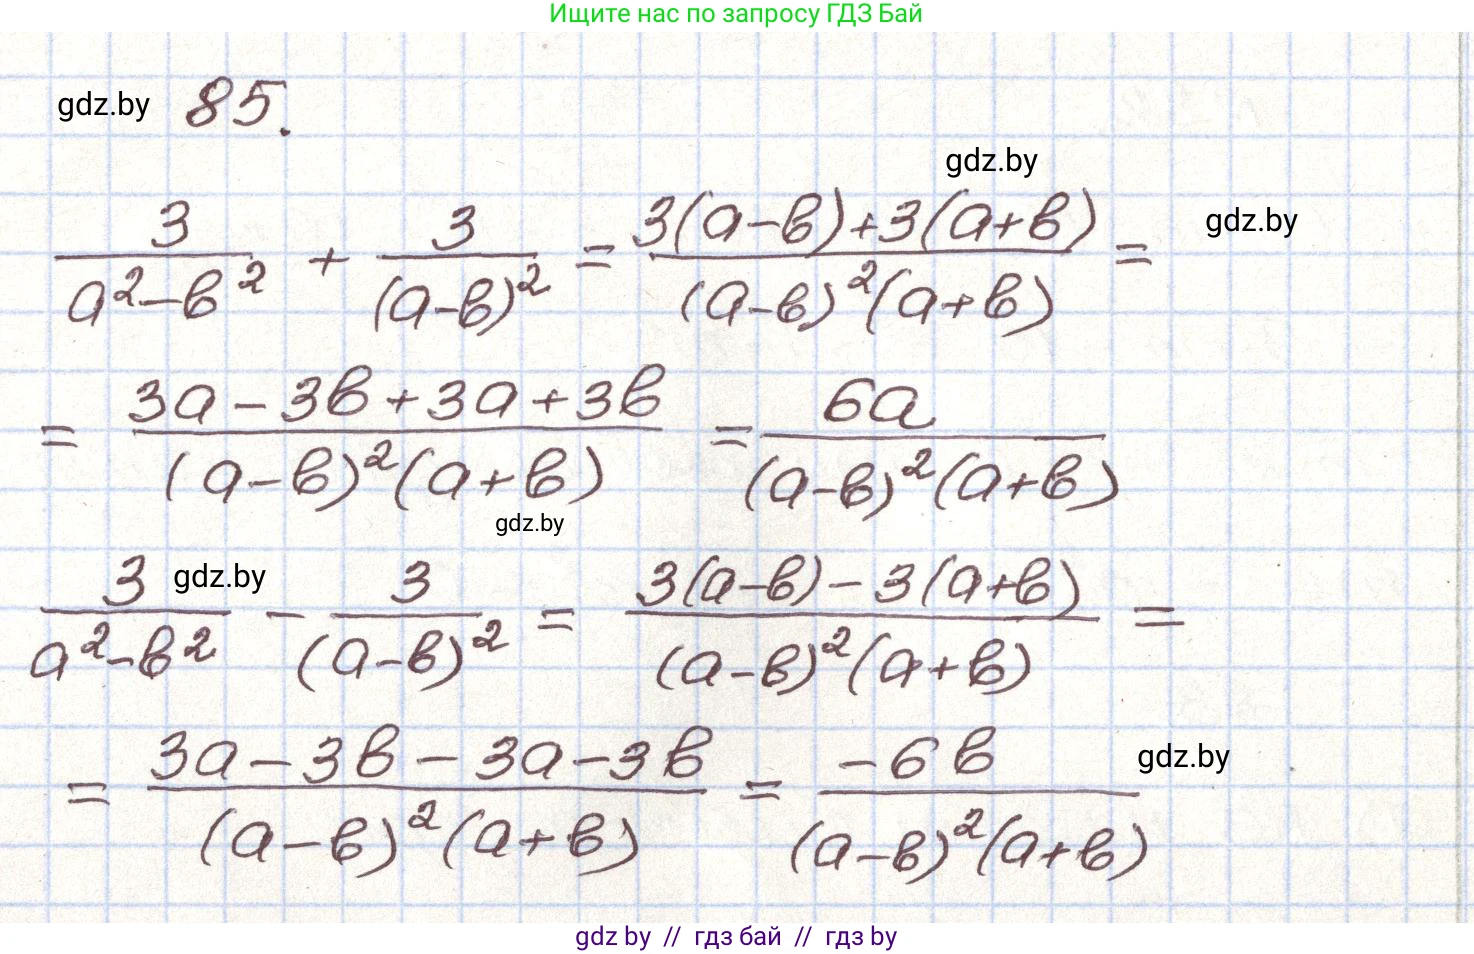 Ищите нас по запросу ГДЗ Бай
gdz.by 85.
gdz.by
gdz.by
3/(a²-в²) + 3/(a-в)² = (3(a-в)+3(a+в))/((a-в)²(a+в)) =
= (3a-3в+3a+3в)/((a-в)²(a+в)) = 6a/((a-в)²(a+в))
gdz.by
gdz.by
3/(a²-в²) - 3/(a-в)² = (3(a-в)-3(a+в))/((a-в)²(a+в)) =
= (3a-3в-3a-3в)/((a-в)²(a+в)) = -6в/((a-в)²(a+в))
gdz.by
gdz by // гдз бай // гдз by